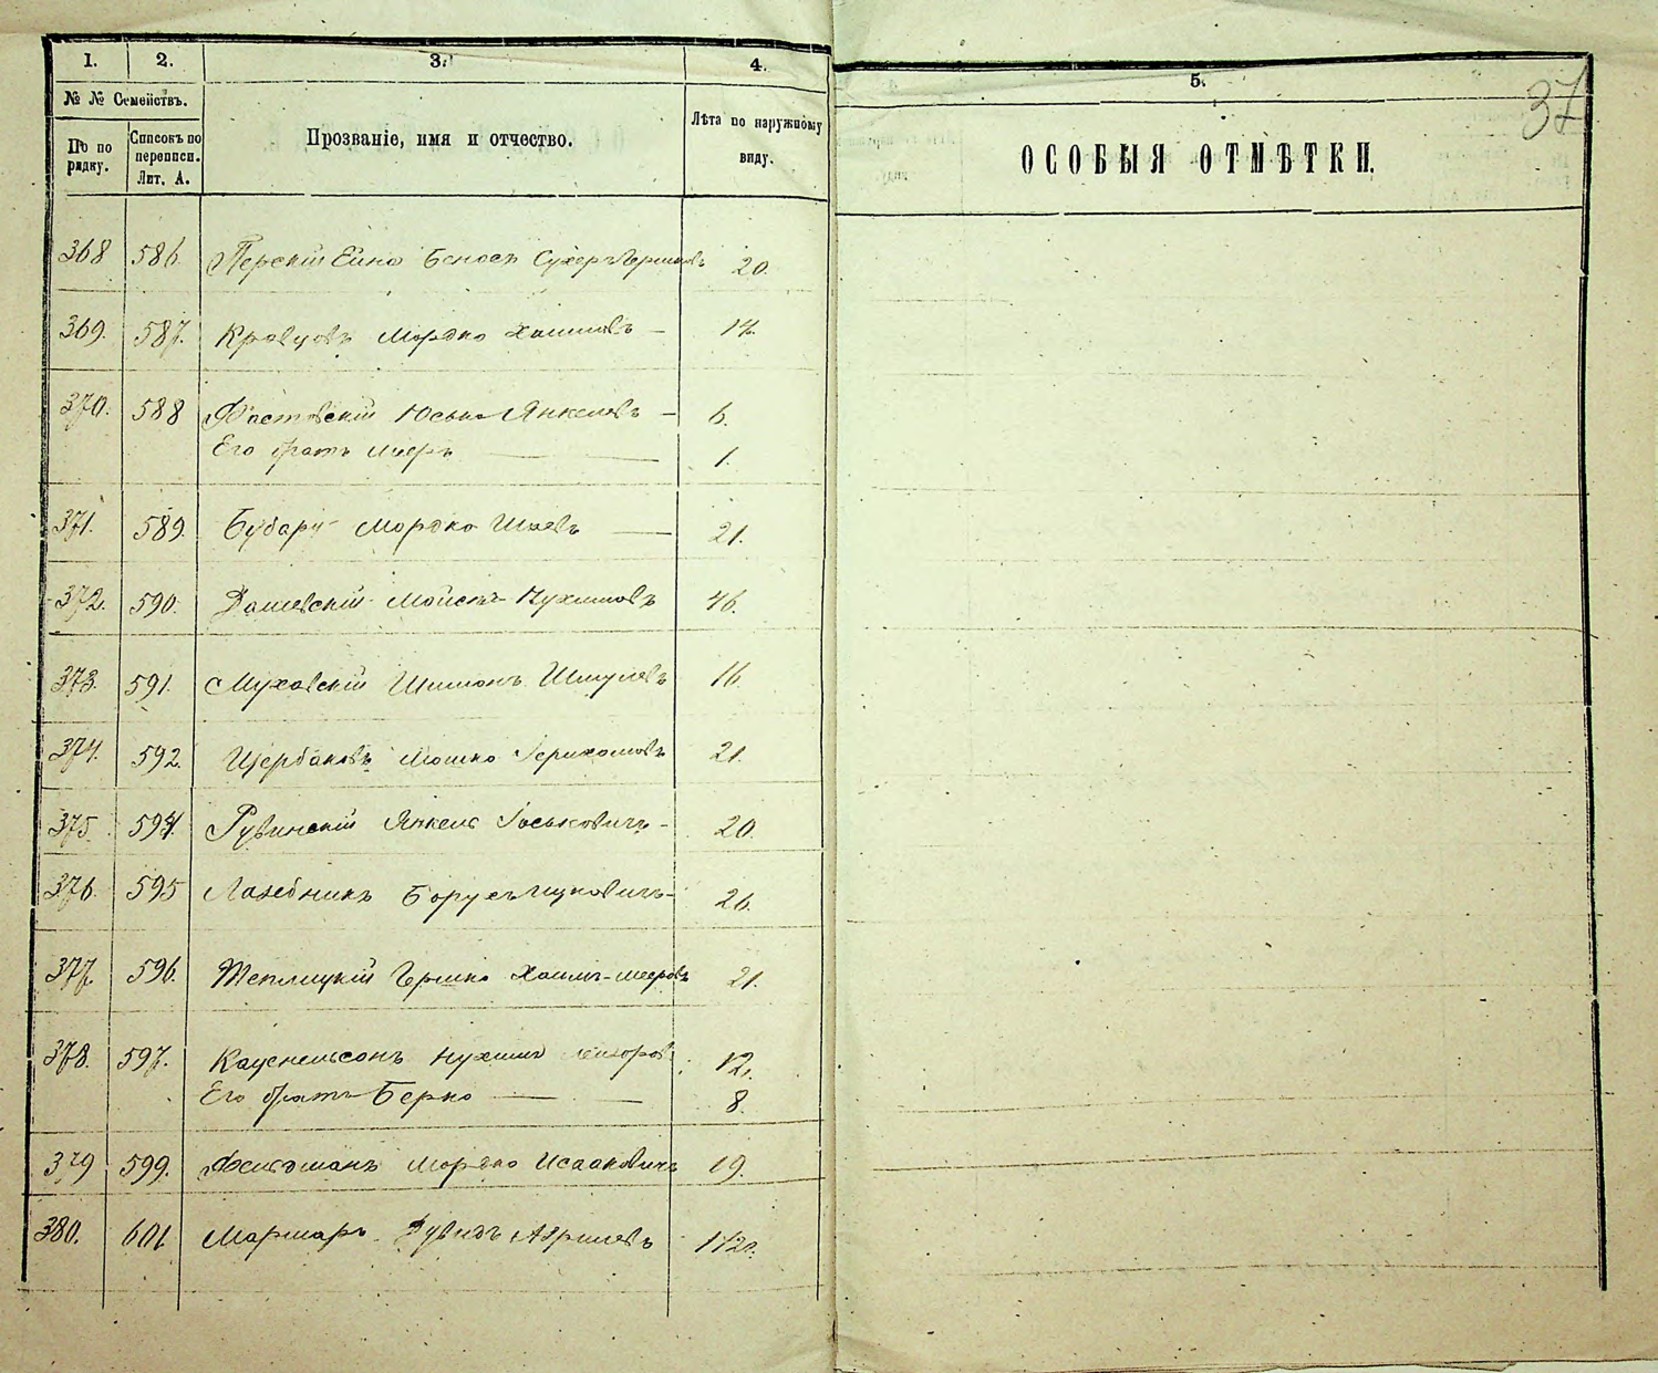 1. 2. 3. 4. 5.
37
№ № Семействъ.
По по рядку. Списокъ по переписи. Лит. А. Прозваніе, имя и отчество. Лѣта по наружному виду. ОСОБЫЯ ОТМѢТКИ.
368 586. Перскій Ейна Беносъ Сухеръ Гершковъ 20.
369. 587. Кравцовъ Мордко Хаимовъ — 14.
370. 588 Фастовскій Юсько Янкелевъ — 6.
Его братъ Мееръ — — 1.
371. 589. Бубарь Мордко Шаевъ — 21.
372. 590. Дашевскій Мойсей Нухимовъ 46.
373. 591. Муховскій Шимонъ Шмулевъ 16.
374. 592. Щербаковъ Мошко 21.
375. 594. Рувинскій Янкель Іоськовичъ - 20.
376. 595 Лазебникъ Борухъ Ицковичъ - 26.
377. 596. Теплицкій Гершко Хаимъ-Мееровъ 21.
378. 597. Кацнельсонъ Нухимъ Лейзоров. 12.
Его братъ Берко — — 8.
379 599. Фельдманъ Мордко Исааковичъ 19.
380. 601. Маршаръ Дувидъ 1 1/2 г.